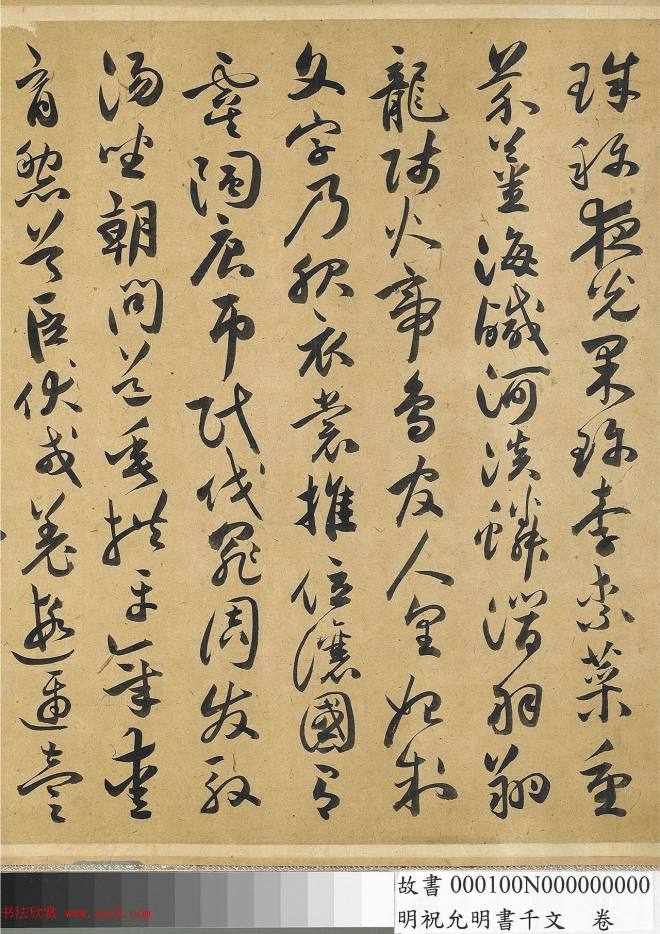 珠稱夜光果珍李柰菜重
芥薑海鹹河淡鱗潛羽翔
龍師火帝鳥官人皇始制
文字乃服衣裳推位讓國有
虞陶唐弔民伐罪周發殷
湯坐朝問道垂拱平章愛
育黎首臣伏戎羌遐邇壹
故書 000100N000000000
明祝允明書千文 卷
书法欣赏